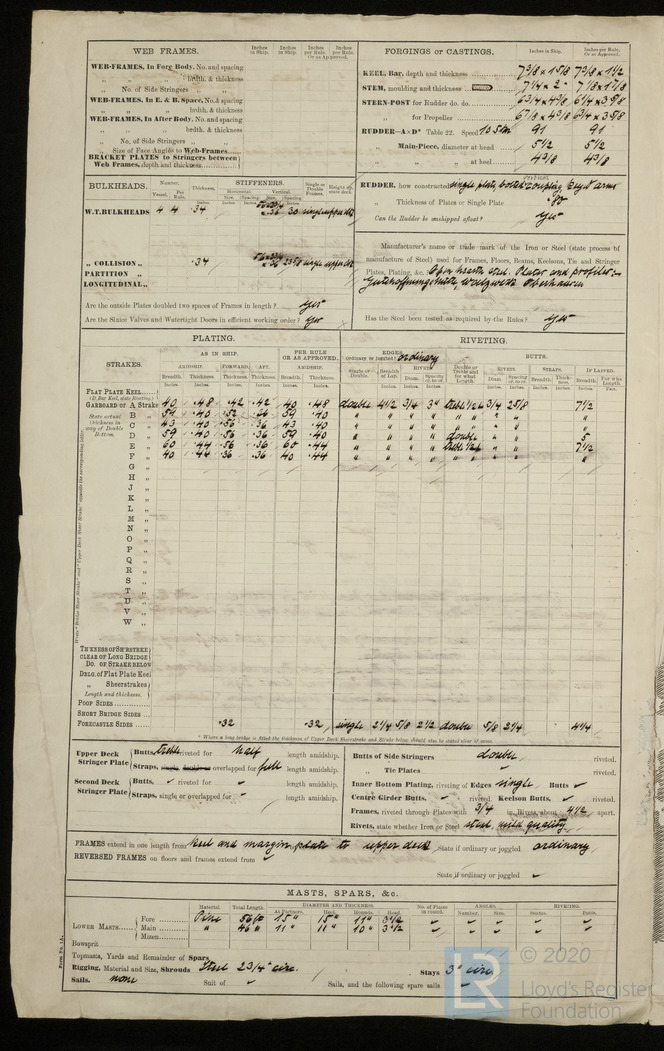 WEB FRAMES.
Inches in Ship. Inches in Ship. Inches per Rule. Inches per Rule. Or as approved.
WEB-FRAMES, In Fore Body, No. and spacing
" " brdth. & thickness
" No. of Side Stringers
WEB-FRAMES, In E. & B. Space, No. & spacing
" " brdth. & thickness
WEB-FRAMES, In After Body, No. and spacing
" " brdth. & thickness
" No. of Side Stringers "
" Size of Face Angles to Web-Frames
BRACKET PLATES to Stringers between Web Frames, depth and thickness
FORGINGS or CASTINGS. Inches in Ship. Inches per Rule, Or as approved.
KEEL, Bar, depth and thickness 7 3/8 x 1 5/8 7 3/8 x 1 1/2
STEM, moulding and thickness 7 1/4 x 2 7 1/8 x 1 7/8
STERN-POST for Rudder do. do. 6 3/4 x 4 3/8 6 1/4 x 3 5/8
" for Propeller 6 7/8 x 4 3/8 6 3/4 x 3 5/8
RUDDER—A×D* Table 22. Speed 10.5 kn 91 91
Main-Piece, diameter at head 5 1/2 5 1/2
" " at heel 4 3/8 4 3/8
BULKHEADS. Number. Vessel. Per Rule. Thickness. STIFFENERS. Horizontal. Vertical. Size. Spacing Size. Spacing Single or Double Frames. Height up, state deck.
W.T. BULKHEADS 4 4 .34 30 single upper deck
" COLLISION " .34 single upper deck
PARTITION "
LONGITUDINAL "
Are the outside Plates doubled two spaces of Frames in length? Yes
Are the Sluice Valves and Watertight Doors in efficient working order? Yes
RUDDER, how constructed single plate, coupling
" Thickness of Plates or Single Plate
Can the Rudder be unshipped afloat? Yes
Manufacturer's name or trade mark of the Iron or Steel (state process of manufacture of Steel) used for Frames, Floors, Beams, Keelsons, Tie and Stringer Plates, Plating, &c. Open hearth steel. Plates and profiles:-
Gutehoffnungshütte, Walzwerk Oberhausen
Has the Steel been tested as required by the Rules? Yes
PLATING. RIVETING.
STRAKES. AS IN SHIP. PER RULE OR AS APPROVED. EDGES. Ordinary or joggled? ordinary BUTTS.
AMIDSHIP. FORWARD. AFT. AMIDSHIP. RIVETS. STRAPS. IF LAPPED.
Breadth. Thickness. Thickness. Thickness. Breadth. Thickness. Single or Double. Breadth of Lap. Diam. Spacing cr. to cr. Double or Treble and for what Length. Diam. Spacing cr. to cr. Breadth. Thickness. Breadth. For what Length.
FLAT PLATE KEEL
GARBOARD or A Strake 40 .48 .42 .42 40 .48 double 4 1/2 3/4 3" treble 1/2 L 3/4 2 5/8 7 1/2
B " 59 .40 .52 59 .40 " " " " " " " "
C " 43 .40 .36 .36 43 .40 " " " " " " " "
D " 59 .40 .56 .36 59 .40 " " " " double " " 5
E " 60 .44 .56 .36 60 .44 " " " " treble 1/2 L " " 7 1/2
F " 40 .44 .36 .36 40 .44 " " " " " " " "
G "
H "
J "
K "
L "
M "
N "
O "
P "
Q "
R "
S "
T "
U "
V "
W "
State actual thickness in way of Double Bottom.
THICKNESS OF SH'RSTRKE CLEAR OF LONG BRIDGE
DO. OF STRAKE BELOW
DBLG. of Flat Plate Keel
" Sheerstrakes
Length and thickness.
POOP SIDES
SHORT BRIDGE SIDES
FORECASTLE SIDES .32 .32 single 2 1/4 5/8 2 1/2 double 5/8 2 1/4 4 1/4
* Where a long bridge is fitted the thickness of Upper Deck Sheerstrake and Strake below should also be stated clear of same.
Upper Deck Stringer Plate Butts, treble riveted for half length amidship.
Straps, single, double or overlapped for full length amidship.
Second Deck Stringer Plate Butts, riveted for length amidship.
Straps, single or overlapped for length amidship.
Butts of Side Stringers double riveted.
" Tie Plates riveted.
Inner Bottom Plating, riveting of Edges single Butts
Centre Girder Butts, riveted. Keelson Butts, riveted.
Frames, riveted through Plates with 3/4 in. Rivets, about 4 1/2 apart.
Rivets, state whether Iron or Steel steel, mild quality
FRAMES extend in one length from keel and margin plate to upper deck State if ordinary or joggled ordinary
REVERSED FRAMES on floors and frames extend from
State if ordinary or joggled
MASTS, SPARS, &c.
Material. Total Length. DIAMETER AND THICKNESS. At Partners. Heel. Hounds. Head. No. of Plates in round. ANGLES. Number. Size. RIVETING. Seams. Butts.
LOWER MASTS Fore Pine 56 15" 15" 11"
Main " 46 11" 11" 10" 3 1/2
Mizen
Bowsprit
Topmasts, Yards and Remainder of Spars
Rigging, Material and Size, Shrouds Steel 2 3/4" circ. Stays 3" circ.
Sails. none Suit of Sails, and the following spare sails
© 2020
Lloyd's Register
Foundation